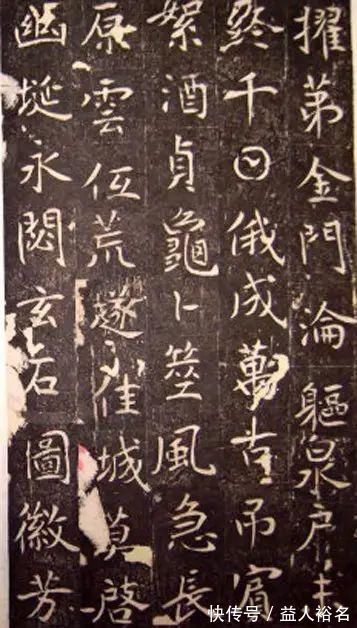 擢第金門淪軀泉戶未
終千𡆠俄成萬古吊賓
絮酒貞龜卜筮風急長
原雲低荒隧佳城莫啓
幽埏永閟玄石圖徽芳
快传号 / 益人裕名